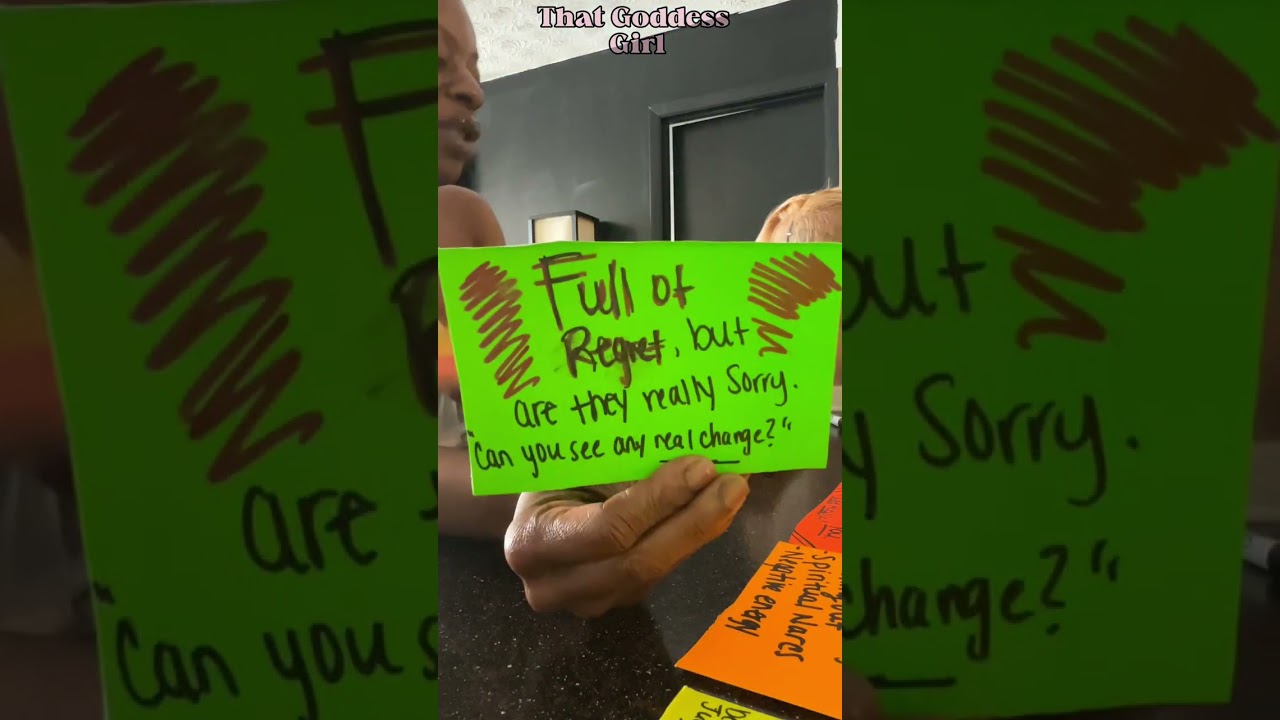 That Goddess
Girl
Full of
Regret, but
are they really Sorry.
"Can you see any real change?"
- Spiritual Wares
- Negative energy